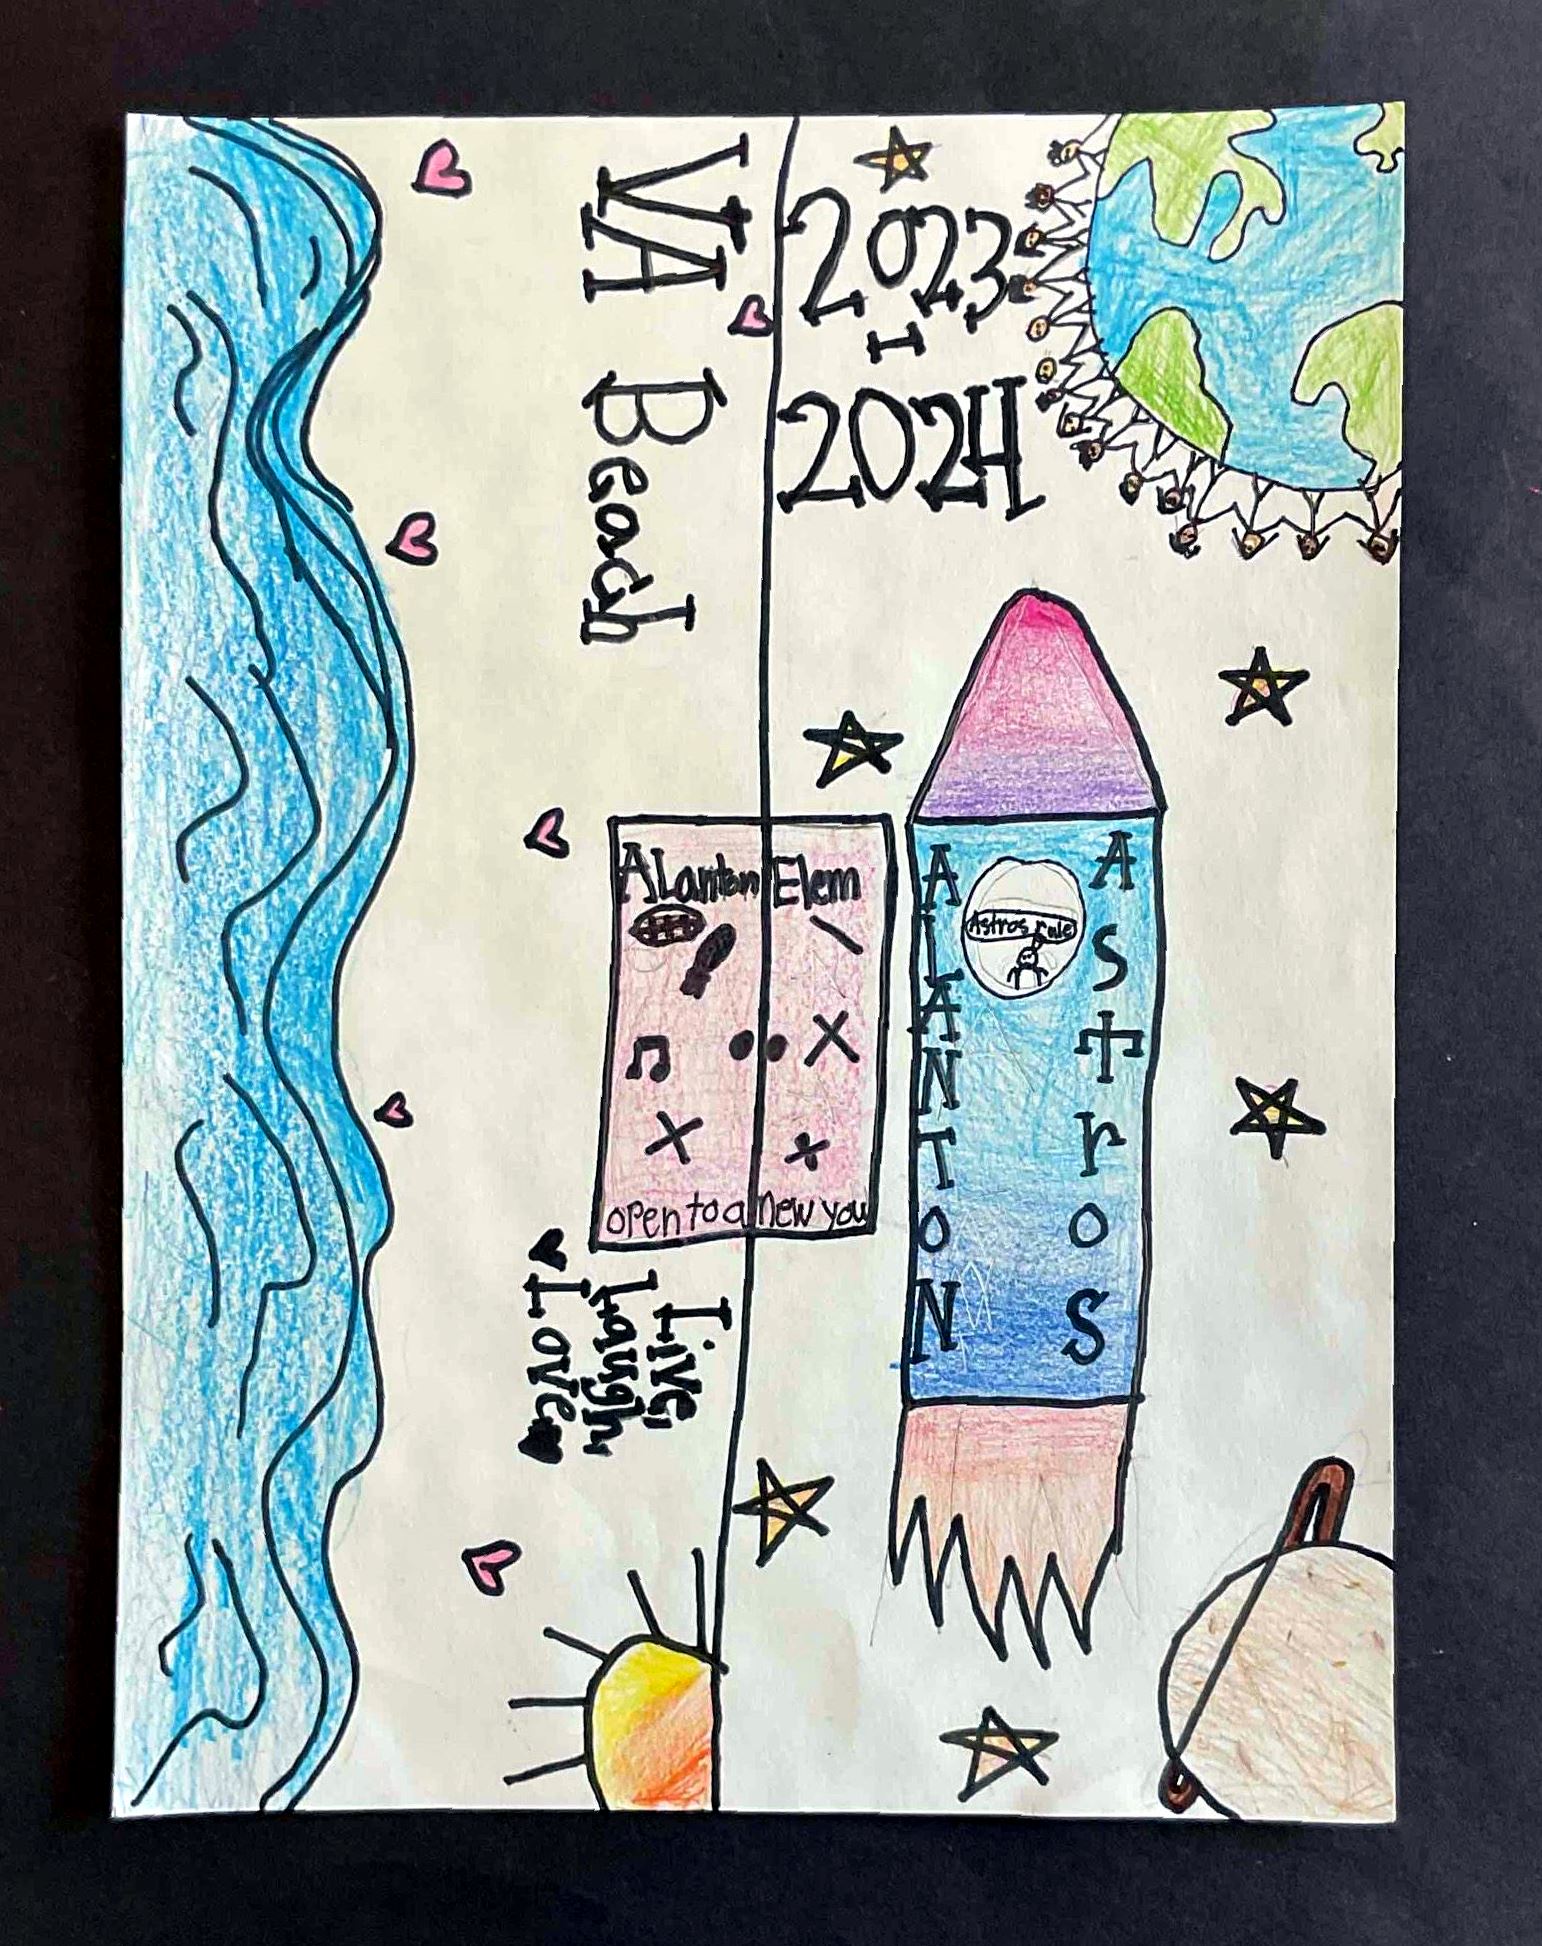 2023
-
2024
VA Beach
ALANTON
AStroS
Astros rule
ALanton Elem
open to a new you
Live,
Laugh
Love